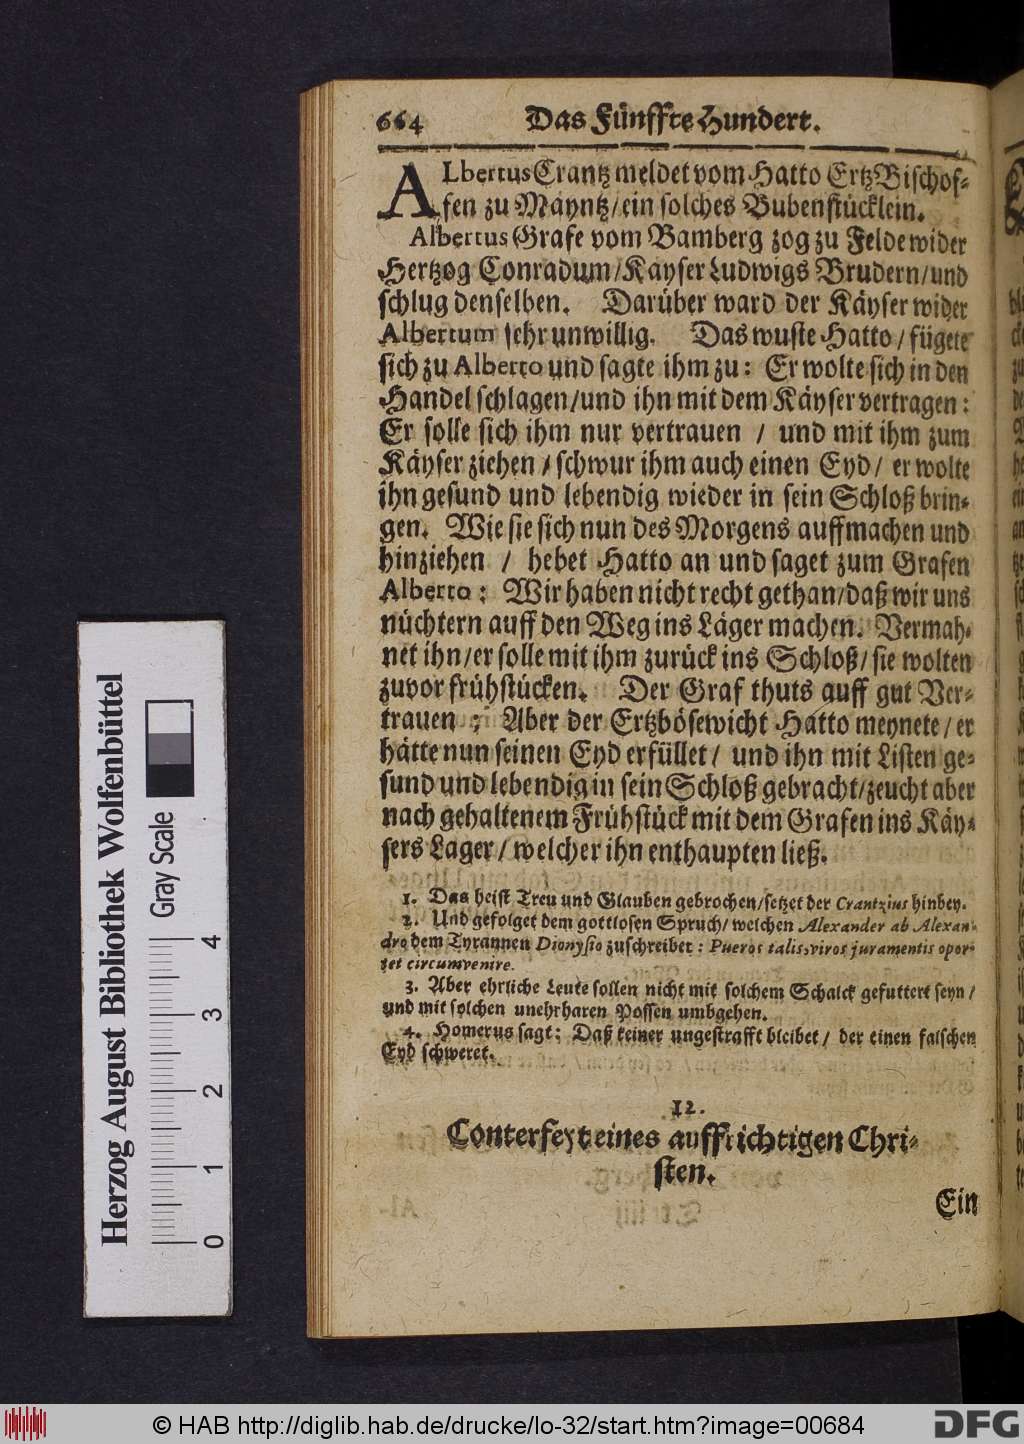 664 Das Fünffte Hundert.
ALbertus Crantz meldet vom Hatto Ertz Bischof-
fen zu Mäyntz / ein solches Bubenstücklein.
Albertus Grafe vom Bamberg zog zu Felde wider
Hertzog Conradum / Kayser Ludwigs Brudern / und
schlug denselben. Darüber ward der Käyser wider
Albertum sehr unwillig. Das wuste Hatto / fügete
sich zu Alberto und sagte ihm zu: Er wolte sich in den
Handel schlagen / und ihn mit dem Käyser vertragen:
Er solle sich ihm nur vertrauen / und mit ihm zum
Käyser ziehen / schwur ihm auch einen Eyd / er wolte
ihn gesund und lebendig wieder in sein Schloß brin-
gen. Wie sie sich nun des Morgens auffmachen und
hinziehen / hebet Hatto an und saget zum Grafen
Alberto: Wir haben nicht recht gethan / daß wir uns
nüchtern auff den Weg ins Läger machen. Vermah-
net ihn / er solle mit ihm zurück ins Schloß / sie wolten
zuvor frühstücken. Der Graf thuts auff gut Ver-
trauen; Aber der Ertzbösewicht Hatto meynete / er
hätte nun seinen Eyd erfüllet / und ihn mit Listen ge-
sund und lebendig in sein Schloß gebracht / zeucht aber
nach gehaltenem Frühstück mit dem Grafen ins Käy-
sers Lager / welcher ihn enthaupten ließ.
1. Das heist Treu und Glauben gebrochen / setzet der Crantzius hinbey.
2. Und gefolget dem gottlosen Spruch / welchen Alexander ab Alexan-
dro dem Tyrannen Dionysio zuschreibet: Pueros talis, viros juramentis opor-
tet circumvenire.
3. Aber ehrliche Leute sollen nicht mit solchem Schalck gefuttert seyn /
und mit solchen unehrbaren Possen umbgehen.
4. Homerus sagt: Daß keiner ungestrafft bleibet / der einen falschen
Eyd schweret.
12.
Conterfeyt eines auffrichtigen Chri-
sten.
Ein
Herzog August Bibliothek Wolfenbüttel
Gray Scale
0 1 2 3 4
© HAB http://diglib.hab.de/drucke/lo-32/start.htm?image=00684
DFG